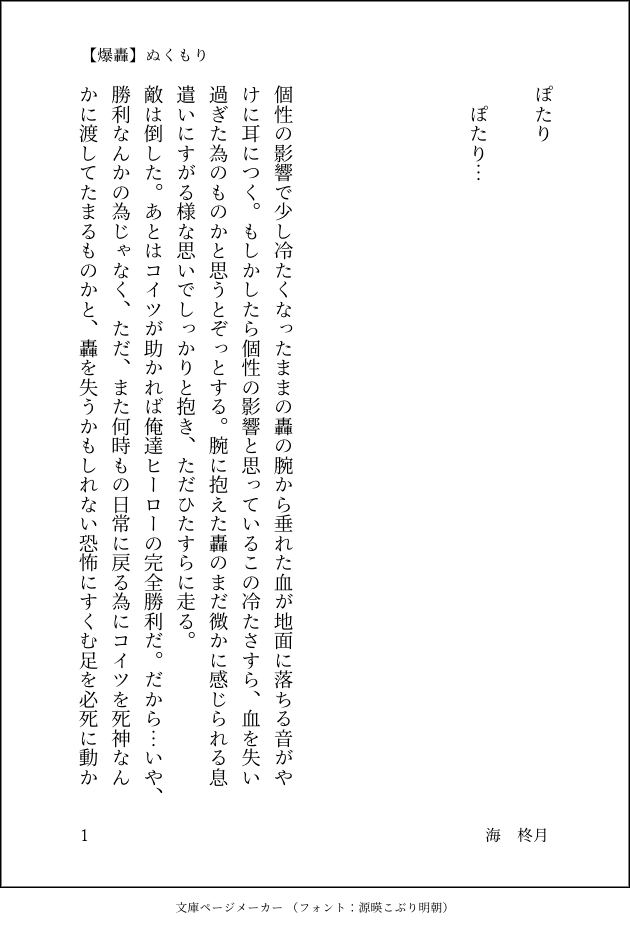 【爆轟】ぬくもり
ぽたり
ぽたり…
個性の影響で少し冷たくなったままの轟の腕から垂れた血が地面に落ちる音がや
けに耳につく。もしかしたら個性の影響と思っているこの冷たさすら、血を失い
過ぎた為のものかと思うとぞっとする。腕に抱えた轟のまだ微かに感じられる息
遣いにすがる様な思いでしっかりと抱き、ただひたすらに走る。
敵は倒した。あとはコイツが助かれば俺達ヒーローの完全勝利だ。だから…いや、
勝利なんかの為じゃなく、ただ、また何時もの日常に戻る為にコイツを死神なん
かに渡してたまるものかと、轟を失うかもしれない恐怖にすくむ足を必死に動か
1
海 柊月
文庫ページメーカー（フォント：源暎こぶり明朝）